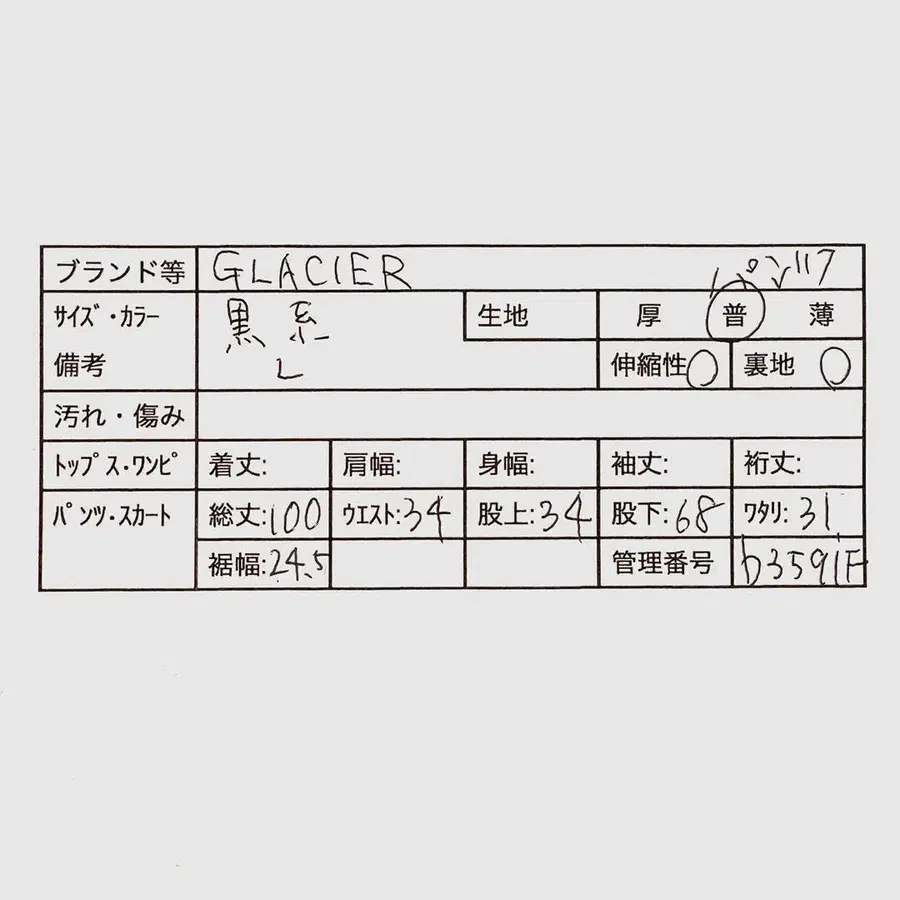 ブランド等 GLACIER パンツ
サイズ・カラー 黒系 生地 厚 普 薄
備考 L 伸縮性○ 裏地 ○
汚れ・傷み
トップス・ワンピ 着丈: 肩幅: 身幅: 袖丈: 裄丈:
パンツ・スカート 総丈:100 ウエスト:34 股上:34 股下:68 ワタリ:31
裾幅:24.5 管理番号 b3591F